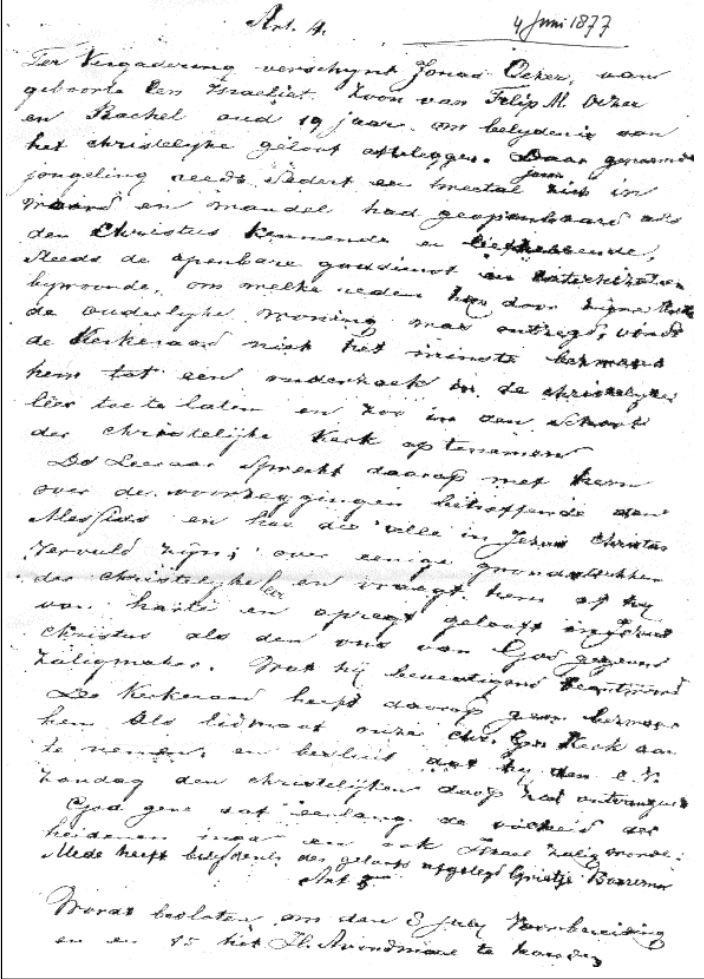 Art. 4.
4 Juni 1877
Ter Vergadering verschynt Jonas Ocker, van
geboorte Een Israeliet. Zoon van Filip M. Ocker
en Rachel oud 19 jaar. om belydenis van
het christelyke geloof afteleggen. Daar genoemde
jongeling reeds sedert een tweetal jaren zich in
woord en wandel had geopenbaard als
den Christus kennende en liefhebbende,
steeds de openbare goddienst en catechizatien
bywoonde, om welke reden hy door zyne
de ouderlyke woning was ontzegd, vindt
de Kerkeraad niet het minste bezwaar
hem tot een onderzoek in de christelyke
leer toe te laten en zoo in den schoot
der christelijke Kerk op tenemen
De Leeraar spreekt daarop met hem
over de voorzeggingen betreffende den
Messias en hoe die alle in Jezus Christus
vervuld zijn; over eenige grondstukken
der christelyke leer en vraagt hem of hy
van harte en opregt gelooft in Jezus
Christus als den ons van God gegeven
Zaligmaker. Wat hij bevestigend beantwoord
De Kerkeraad heeft daarop geen bezwaar
hem als lidmaat onzer Chr. Ger. Kerk aan
te nemen, en besluit dat hy den e.v.
Zondag den christelijken doop zal ontvangen
God geve dat eenlang de volheid der
heidenen inga en ook Israel zalig worde.
Mede heeft belydenis des geloofs afgelegd Grietje
Art 5
Wordt besloten om den 8 July Voorbereiding
en en 15 het H. Avondmaal te houden